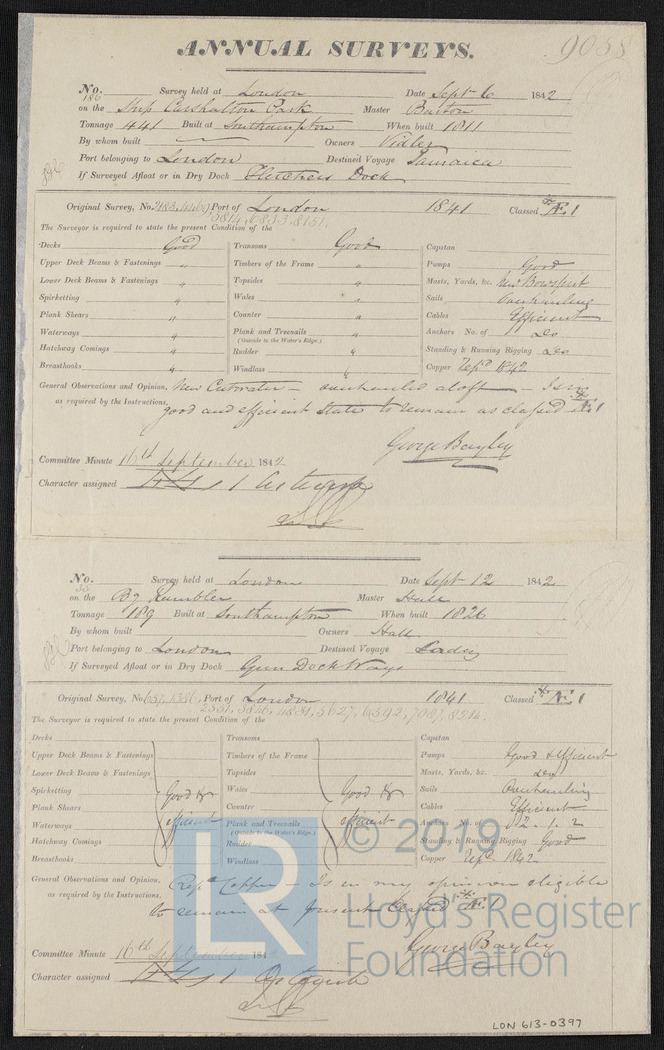 9058
ANNUAL SURVEYS.
No. 186 Survey held at London Date Sept 6 1842
on the Ship Carshalton Park Master Barton
Tonnage 441 Built at Southampton When built 1811
By whom built Owners Vidler
Port belonging to London Destined Voyage Jamaica
If Surveyed Afloat or in Dry Dock Fletchers Dock
Original Survey, No. Port of London 1841 Classed Æ 1
The Surveyor is required to state the present Condition of the
Decks Good Transoms Good Capstan
Upper Deck Beams & Fastenings " Timbers of the Frame " Pumps Good
Lower Deck Beams & Fastenings " Topsides " Masts, Yards, &c. New Bowsprit
Spirketting " Wales " Sails Overhauling
Plank Shears " Counter " Cables Efficient
Waterways " Plank and Treenails " Anchors No. of Do
(Outside to the Water's Edge.)
Hatchway Comings " Rudder " Standing & Running Rigging Do
Breasthooks " Windlass " Copper Repd 1842
General Observations and Opinion, New Cutwater - overhauled aloft - Is in
as required by the Instructions, good and efficient State to remain as classed Æ 1
George Bayley
Committee Minute 16th September 1842
Character assigned 1
No. 35 Survey held at London Date Sept 12 1842
on the Bg Rambler Master Hall
Tonnage 189 Built at Southampton When built 1826
By whom built Owners Hall
Port belonging to London Destined Voyage Cadiz
If Surveyed Afloat or in Dry Dock Gun Dock Ways
Original Survey, No. 637, 1386, Port of London 1841 Classed Æ 1
2551, 3846, 4831, 5627, 6592, 7087, 8214.
The Surveyor is required to state the present Condition of the
Decks Transoms Capstan
Upper Deck Beams & Fastenings Timbers of the Frame Pumps Good & efficient
Lower Deck Beams & Fastenings Topsides Masts, Yards, &c. Do
Spirketting Good & Wales Good & Sails Overhauling
Plank Shears Counter Cables Efficient
Waterways efficient Plank and Treenails efficient Anchors No. of 2. 1. 2
(Outside to the Water's Edge.)
Hatchway Comings Rudder Standing & Running Rigging Good
Breasthooks Windlass Copper Repd 1842
General Observations and Opinion, Repd Copper - Is in my opinion eligible
as required by the Instructions, to remain as present Classed Æ 1
George Bayley
Committee Minute 16th September 1842
Character assigned 1
LR © 2019
Lloyd's Register
Foundation
LON 613-0397